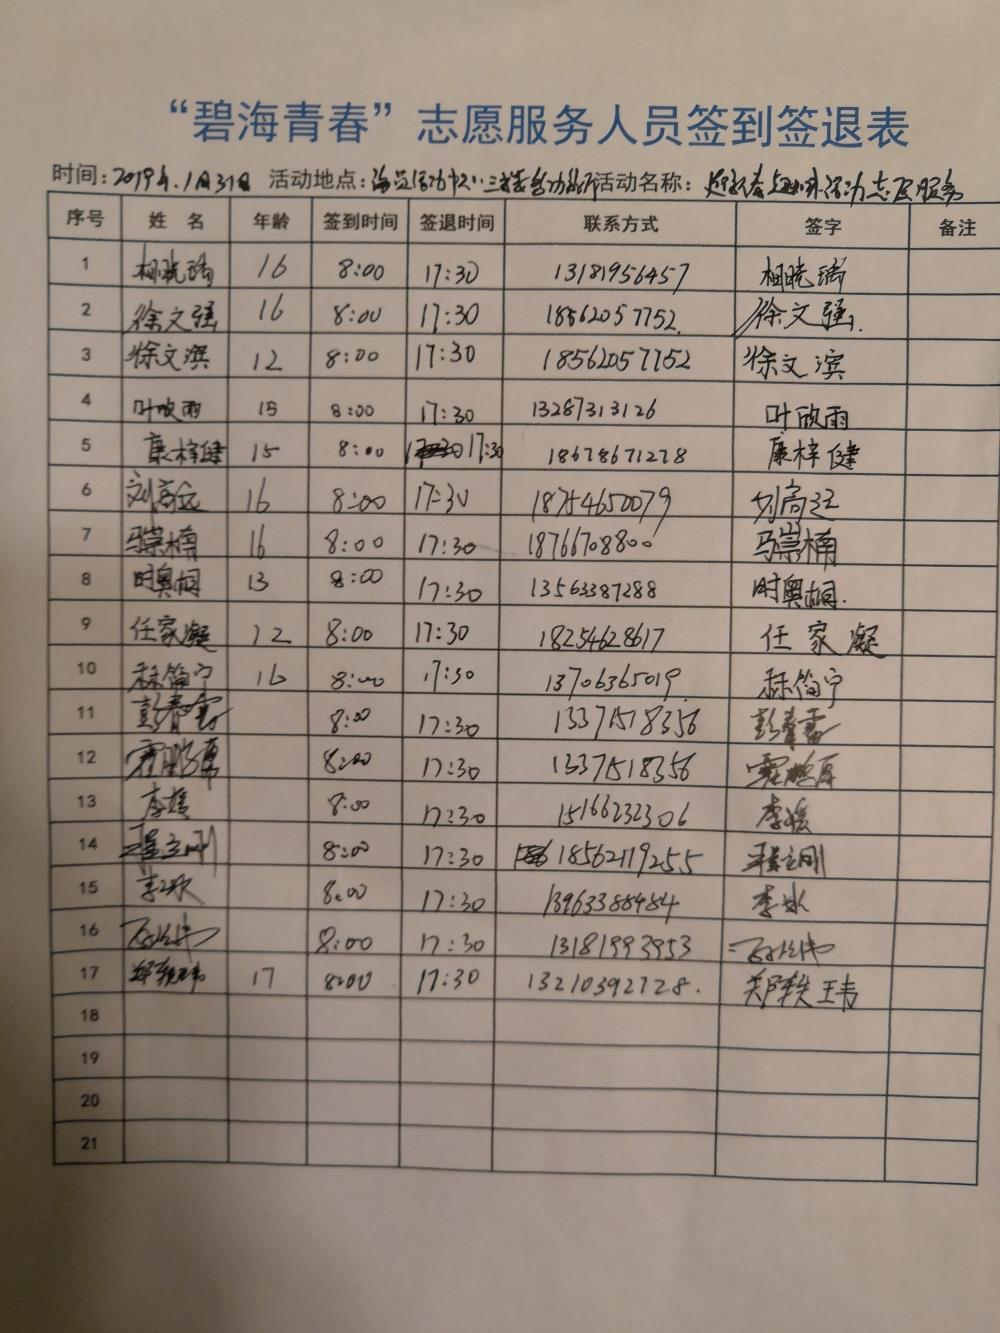 “碧海青春”志愿服务人员签到签退表
时间：2019年.1月31日 活动地点：海员活动中心三楼 活动名称：迎新春乒乓球活动志愿服务
序号 姓名 年龄 签到时间 签退时间 联系方式 签字 备注
1 相晓瑞 16 8:00 17:30 13181956457 相晓瑞
2 徐文强 16 8:00 17:30 18562057752. 徐文强.
3 徐文滨 12 8:00 17:30 18562057752 徐文滨
4 叶欣雨 15 8:00 17:30 13287313126 叶欣雨
5 康梓健 15 8:00 17:30 18678671278 康梓健
6 刘高 16 8:00 17:30 18754650079 刘高
7 马崇楠 16 8:00 17:30 18766708800 马崇楠
8 时奥桐 13 8:00 17:30 13563387288 时奥桐.
9 任家凝 12 8:00 17:30 18254628617 任家凝
10 简宁 16 8:00 17:30 13706365019. 简宁
11 彭春雷 8:00 17:30 13371518356 彭春雷
12 8:00 17:30 13371518356
13 李媛 8:00 17:30 15166232306 李媛
14 程立刚 8:00 17:30 18562119255 程立刚
15 李冰 8:00 17:30 13963388484 李冰
16 8:00 17:30 13181993953
17 郑轶玮 17 8:00 17:30 13210392728. 郑轶玮
18
19
20
21